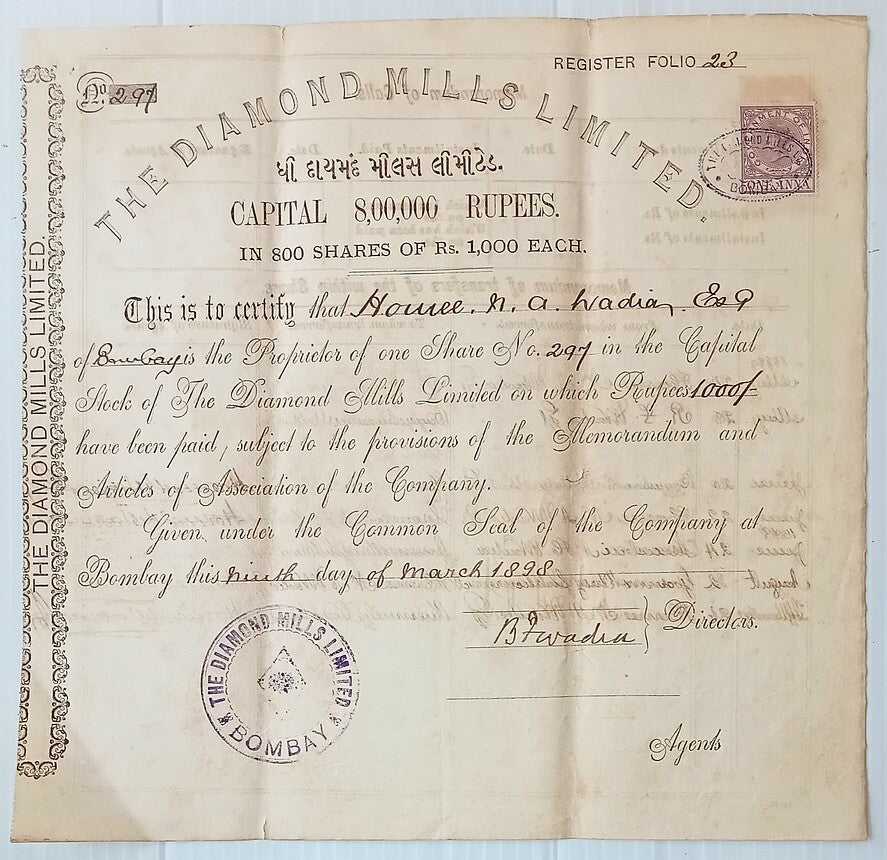 REGISTER FOLIO 23
No 297
THE DIAMOND MILLS LIMITED.
ધી દાયમદં મીલસ લીમીટેડ.
CAPITAL 8,00,000 RUPEES.
IN 800 SHARES OF Rs. 1,000 EACH.
This is to certify that Homee. N. A. Wadia, Esq
of Bombay is the Proprietor of one Share No. 297 in the Capital
Stock of The Diamond Mills Limited on which Rupees 1000/-
have been paid, subject to the provisions of the Memorandum and
Articles of Association of the Company.
Given under the Common Seal of the Company at
Bombay this ninth day of March 1898
B F Wadia } Directors.
Agents
THE DIAMOND MILLS LIMITED
BOMBAY
THE DIAMOND MILLS LIMITED.
ONE ANNA
BOMBAY